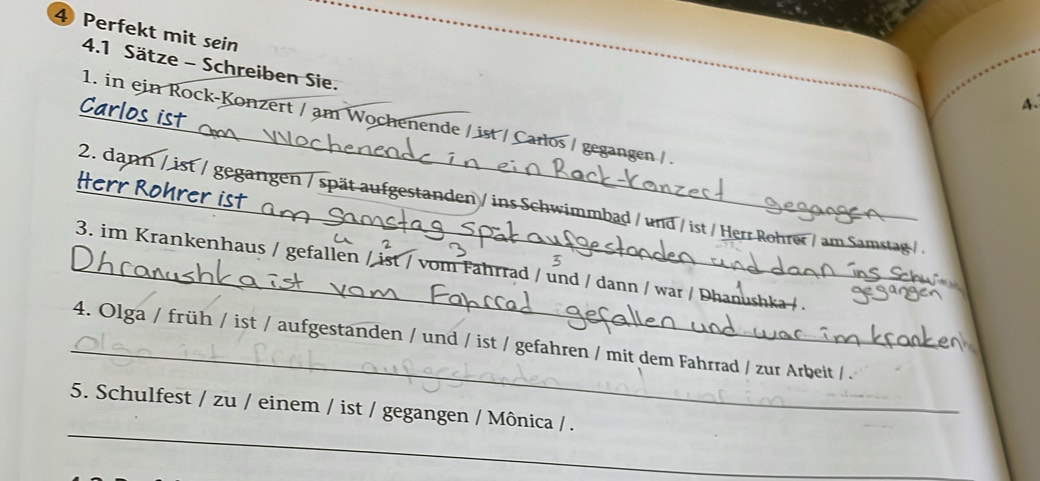 4 Perfekt mit sein
4.1 Sätze – Schreiben Sie.
4.
1. in ein Rock-Konzert / am Wochenende / ist / Carlos / gegangen / .
Carlos ist am Wochenende in ein Rock-Konzert gegangen
2. dann / ist / gegangen / spät aufgestanden / ins Schwimmbad / und / ist / Herr Rohrer / am Samstag / .
Herr Rohrer ist am Samstag spät aufgestanden und dann ins
gegangen
3. im Krankenhaus / gefallen / ist / vom Fahrrad / und / dann / war / Dhanushka / .
4 2 3 5 1
Dhranushka ist vom Fahrrad gefallen und war im
4. Olga / früh / ist / aufgestanden / und / ist / gefahren / mit dem Fahrrad / zur Arbeit / .
Olga ist früh aufgestanden und
5. Schulfest / zu / einem / ist / gegangen / Mônica / .